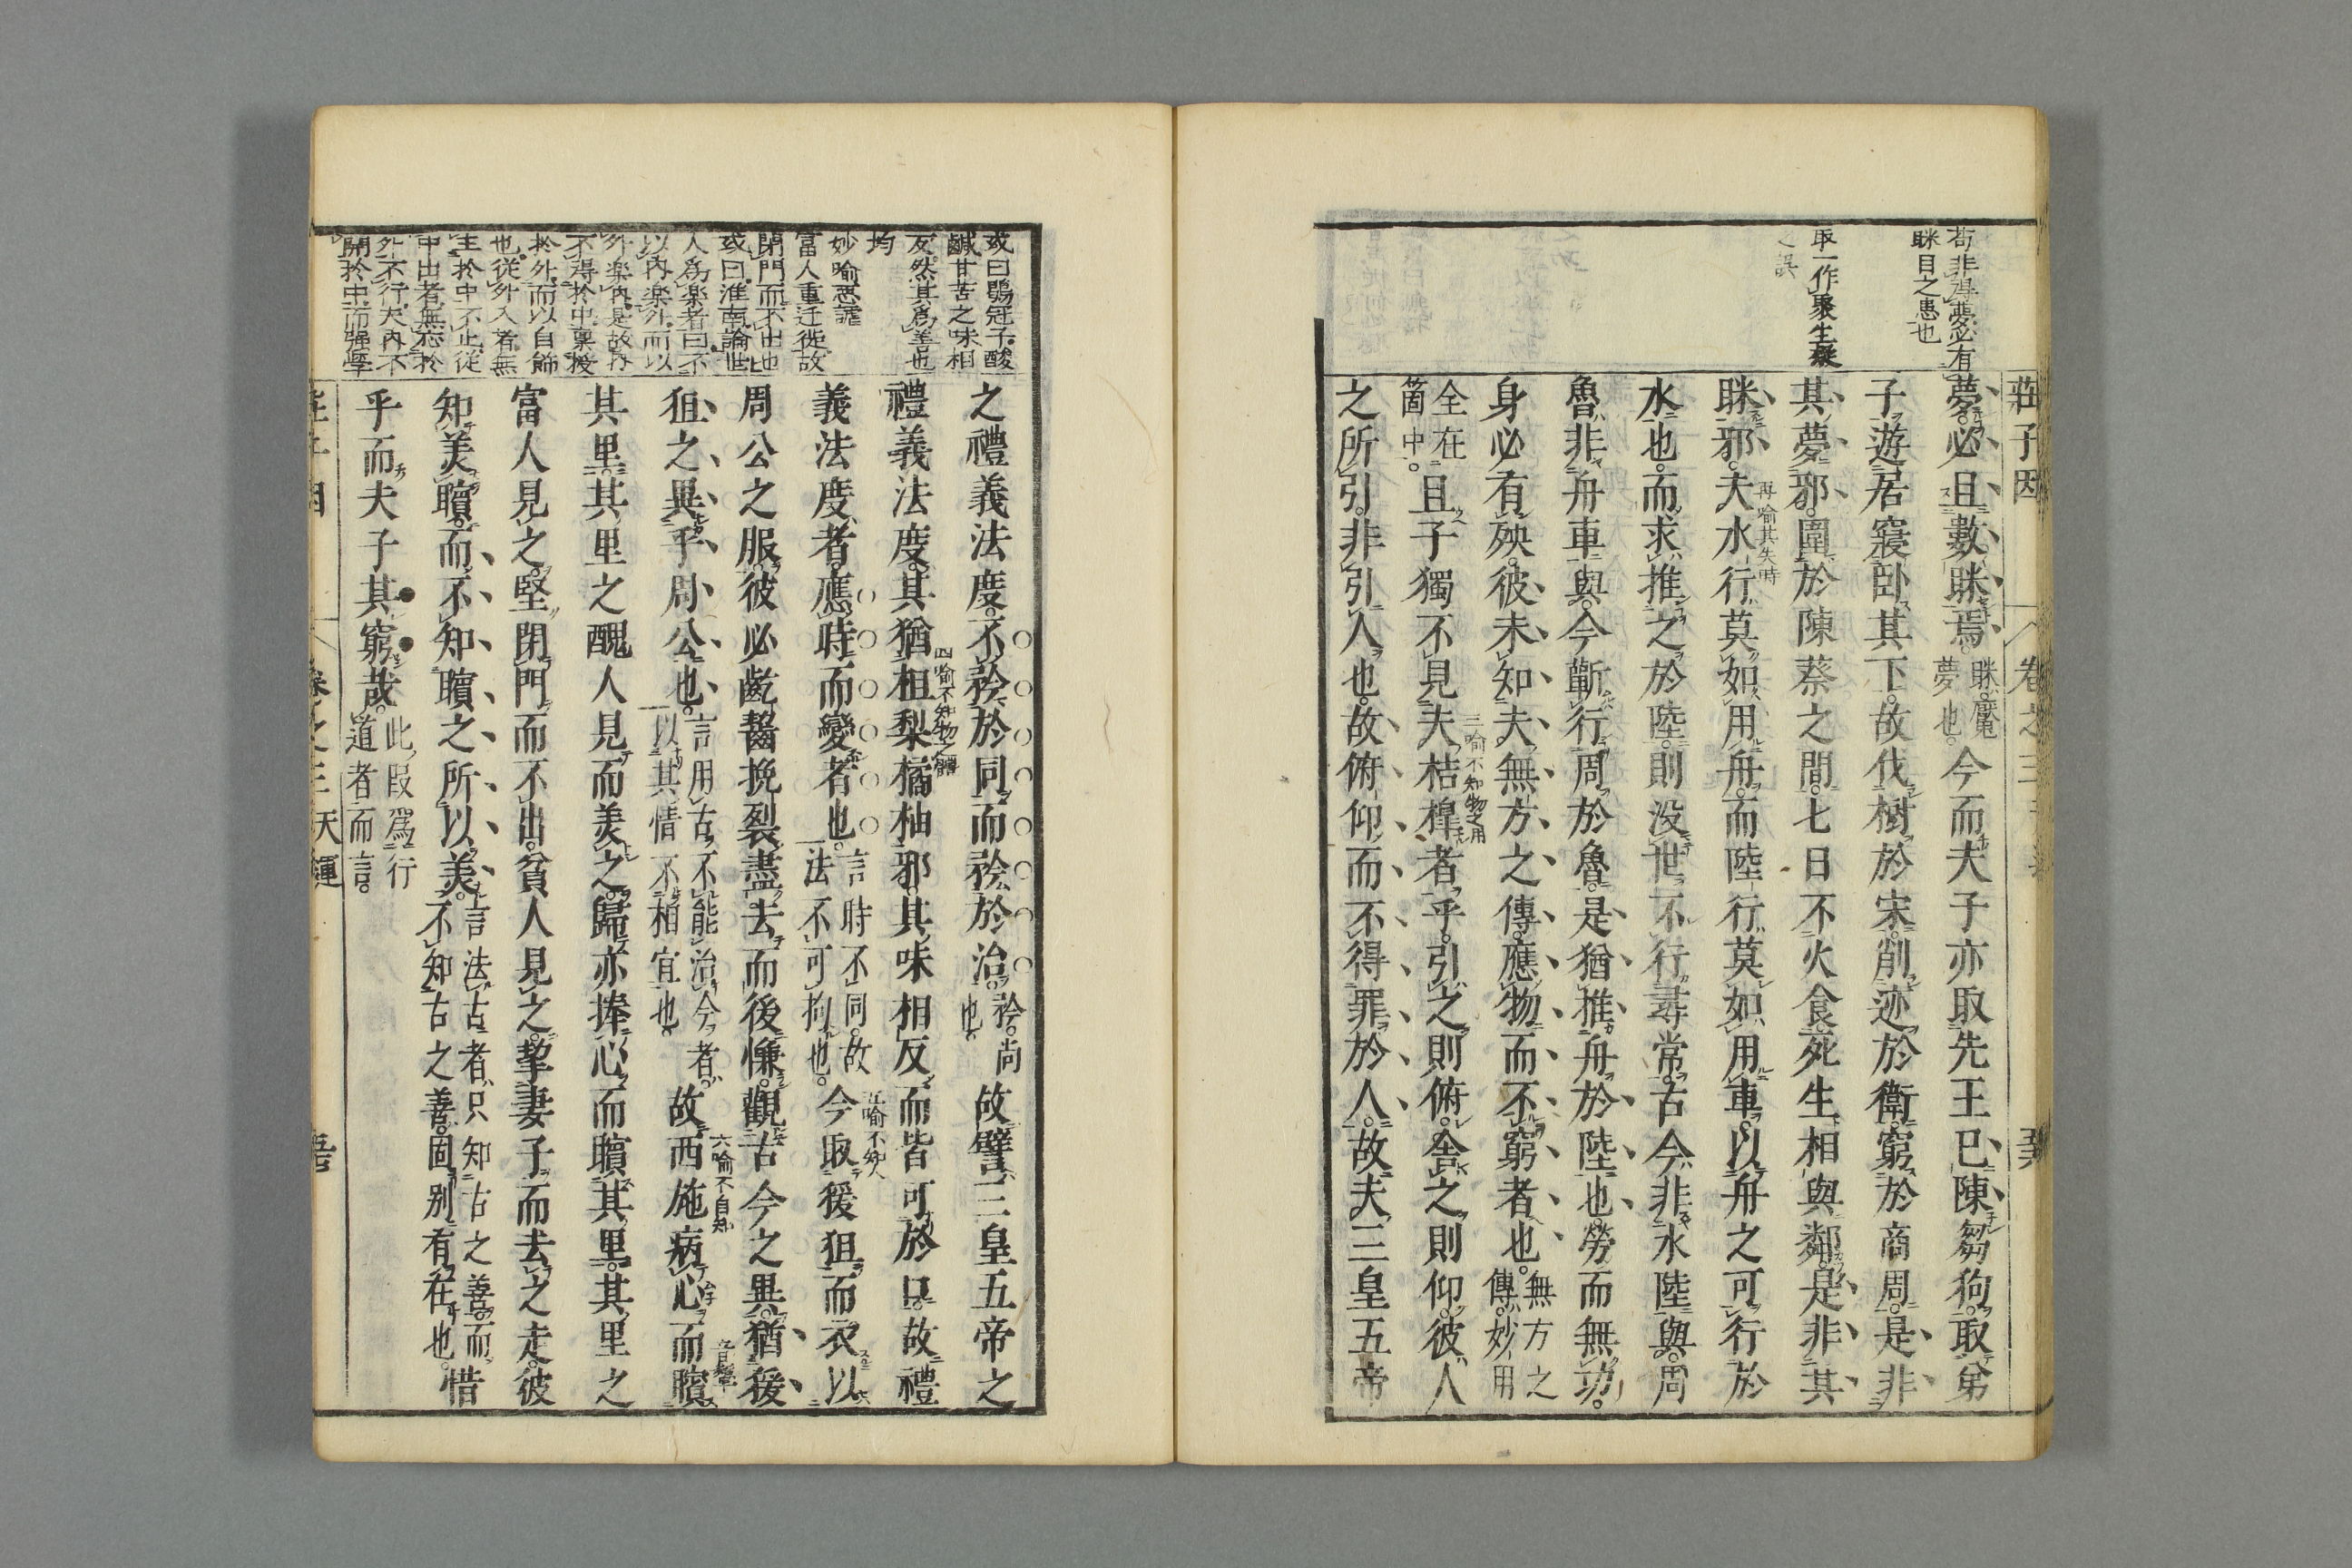 莊子因
卷之三
苟非得夢必有
眯目之患也
取一作聚生疑
之誤
夢必且數眯焉。眯魘夢也。今而夫子亦取先王已陳芻狗。取弟
子遊居寢卧其下。故伐樹於宋。削迹於衛。窮於商周。是非
其夢邪。圍於陳蔡之間。七日不火食死生相與鄰。是非其
眯邪。夫水行莫如用舟。而陸行莫如用車。以舟之可行於
再喻其失時
水也。而求推之於陸。則没世不行尋常。古今非水陸與。周
魯非舟車與。今蘄行周於魯。是猶推舟於陸也勞而無功。
身必有殃。彼未知夫無方之傳。應物而不窮者也。無方之傳。妙用
全在箇中。且子獨不見夫桔橰者乎。引之則俯。舍之則仰。彼人
三喻不知物之用
之所引。非引人也。故俯仰而不得罪於人。故夫三皇五帝
或曰鶡冠子酸
鹹甘苦之味相
反。然其爲善也
均
妙喻恐謔
富人重迁徙。故
閉門而不出也
或曰。淮南論世
人爲楽者曰不
以内楽外。而以
外楽内。是故内
不得於中。稟授
於外。而以自飾
也。從外入者。無
主於中不止。從
中出者。無応於
外不行。夫内不
開於中。而强學
之禮義法度。不矜於同。而矜於治。矜。尚也。故譬三皇五帝之
禮義法度。其猶柤梨橘柚邪。其味相反而皆可於口。故禮
四喻不知物之體
義法度者。應時而變者也。言時不同。故法不可拘也。今取猨狙。而衣以
五喻不知人
周公之服。彼必齕齧挽裂。盡去而後慊。觀古今之異。猶猨
狙之異乎周公也。言用古。不能治今者。以其情不相宜也。故西施病心而矉
六喻不自知
其里。其里之醜人見而美之。歸亦捧心而矉其里。其里之
富人見之。堅閉門而不出。貧人見之。挈妻子而去之走。彼
知美矉。而不知矉之所以美。言法古者。只知古之善。而不知古之善。固别有在也。惜
乎而夫子其窮哉。此段爲行道者而言。
天運